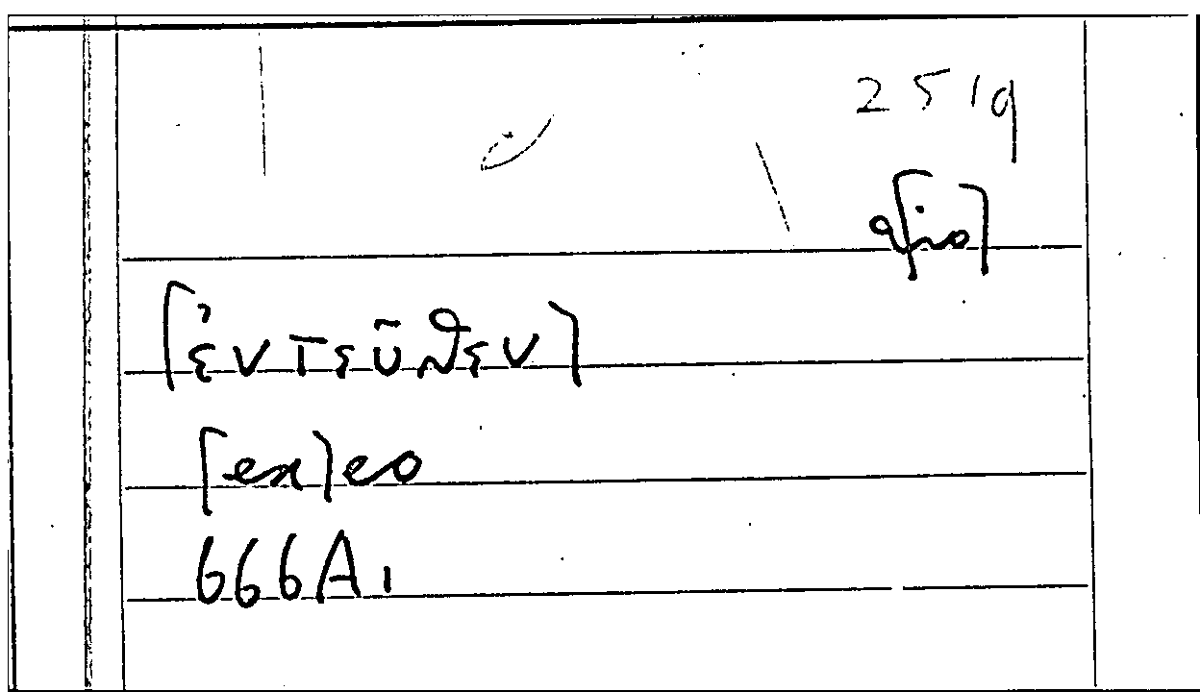 2519
[ἐντεῦθεν]
[ex]eo
666A1